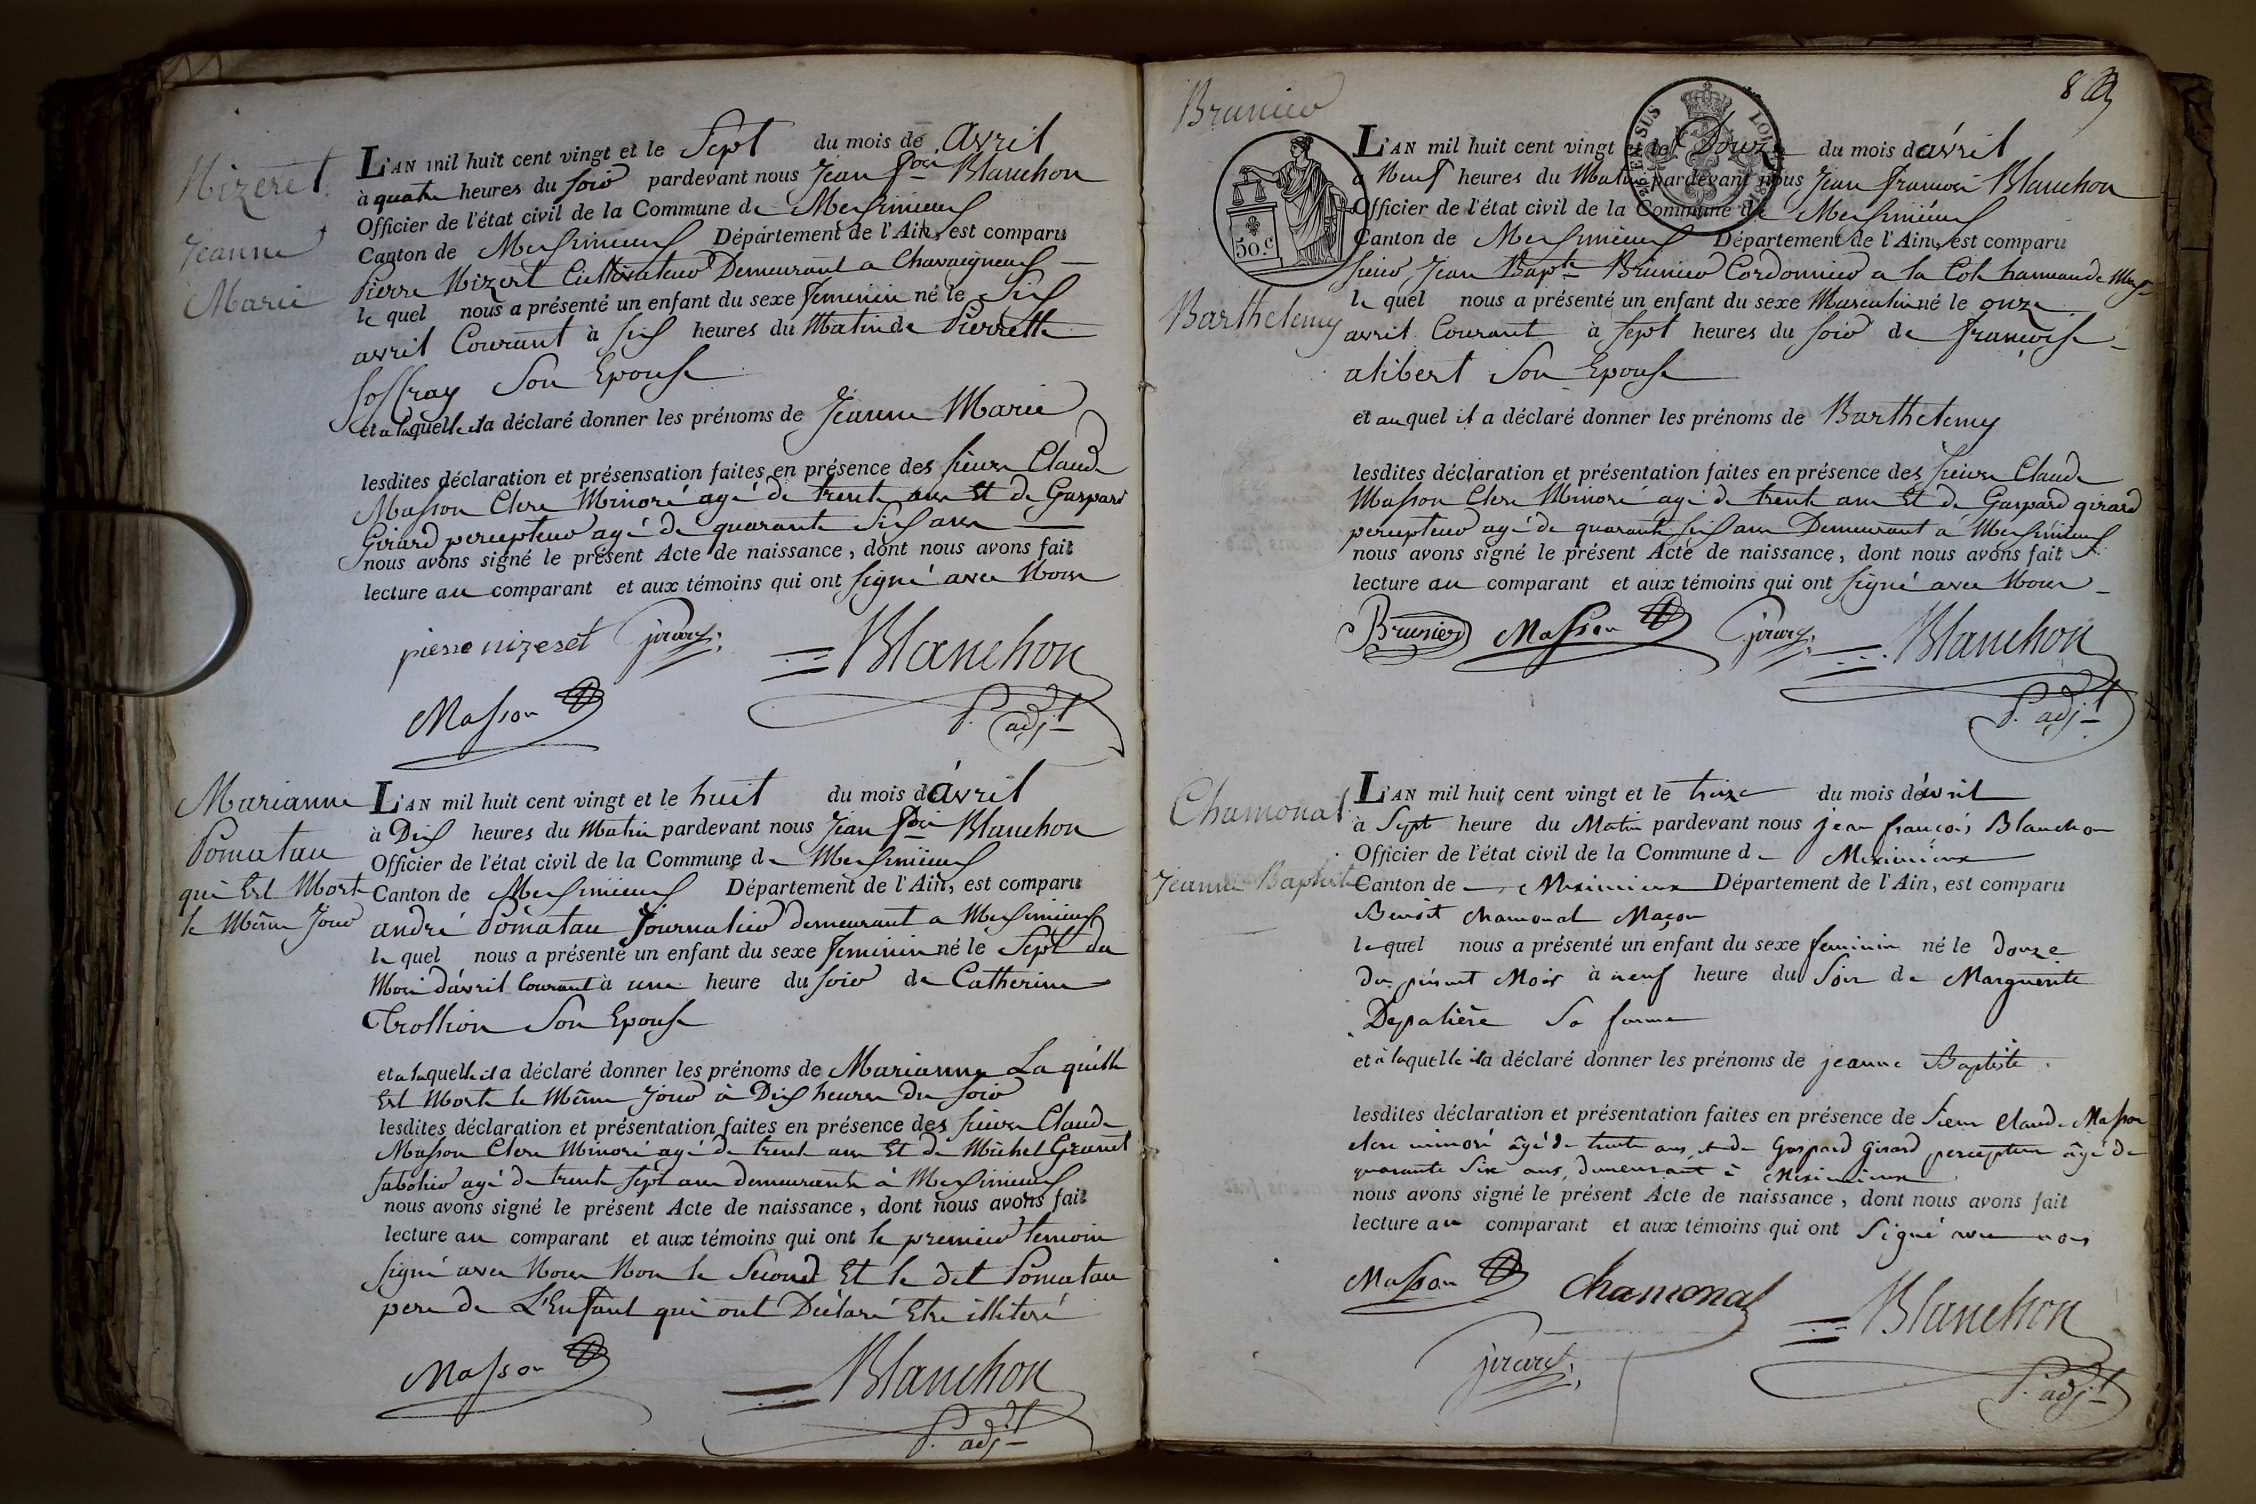 Nizeret
Jeanne
Marie
L'AN mil huit cent vingt et le Sept du mois de avril
à quatre heures du soir pardevant nous Jean fçois Blanchon
Officier de l'état civil de la Commune de Meximieux
Canton de Meximieux Département de l'Ain, est comparu
Pierre Nizeret Cultivateur Demeurant a Chavagneux
le quel nous a présenté un enfant du sexe feminin né le Six
avril Courant à six heures du Matin de Pierrette
Joffray Son Epouse
et a laquelle il a déclaré donner les prénoms de Jeanne Marie
lesdites déclaration et présensation faites en présence des sieurs Claude
Masson Clerc Minoré agé de trente ans Et de Gaspard
Girard percepteur agé de quarante Six ans
nous avons signé le présent Acte de naissance, dont nous avons fait
lecture au comparant et aux témoins qui ont signé avec Nous
pierre nizeret girard
Blanchon
Masson
P. adjt
Marianne
Pomatau
qui Est Morte
le Même Jour
L'AN mil huit cent vingt et le huit du mois d'avril
à Dix heures du Matin pardevant nous Jean fçois Blanchon
Officier de l'état civil de la Commune de Meximieux
Canton de Meximieux Département de l'Ain, est comparu
andré Pomatau Journalier demeurant a Meximieux
le quel nous a présenté un enfant du sexe feminin né le Sept du
Mois d'avril Courant à une heure du soir de Catherine
Trollion Son Epouse
et a laquelle il a déclaré donner les prénoms de Marianne Laquelle
Est Morte le Même Jour à Dix heures du soir
lesdites déclaration et présentation faites en présence des sieurs Claude
Masson Clerc Minoré agé de trente ans Et de Michel Granet
sabotier agé de trente sept ans demeurants à Meximieux
nous avons signé le présent Acte de naissance, dont nous avons fait
lecture au comparant et aux témoins qui ont le premier temoin
signé avec Nous Non le Second Et le dit Pomatau
pere de L'Enfant qui ont Déclaré Etre illiteré
Masson Blanchon
P. adjt
8
Brunier
Barthelemy
50.c
L'AN mil huit cent vingt et le Douze du mois d'avril
à Neuf heures du Matin pardevant nous Jean francois Blanchon
Officier de l'état civil de la Commune de Meximieux
Canton de Meximieux Département de l'Ain, est comparu
sieur Jean Bapte Brunier Cordonnier a la Cote hameau de Mex
le quel nous a présenté un enfant du sexe Masculin né le onze
avril Courant à sept heures du soir de françoise
alibert Son Epouse
et au quel il a déclaré donner les prénoms de Barthelemy
lesdites déclaration et présentation faites en présence des sieurs Claude
Masson Clerc Minoré agé de trente ans Et de Gaspard girard
percepteur agé de quarante six ans Demeurant a Meximieux
nous avons signé le présent Acte de naissance, dont nous avons fait
lecture au comparant et aux témoins qui ont signé avec Nous
Brunier Masson girard Blanchon
P. adjt
Chamonal
Jeanne Baptiste
L'AN mil huit cent vingt et le treize du mois d'avril
à Sept heure du Matin pardevant nous jean françois Blanchon
Officier de l'état civil de la Commune de Meximieux
Canton de Meximieux Département de l'Ain, est comparu
Benoît chamonal Maçon
lequel nous a présenté un enfant du sexe feminin né le douze
du présent Mois à neuf heure du Soir de Marguerite
Depalière Sa femme
et à laquelle il a déclaré donner les prénoms de jeanne Baptiste.
lesdites déclaration et présentation faites en présence de Sieur Claude Masson
clerc minoré âgé de trente ans, et de Gaspard Girard percepteur âgé de
quarante Six ans, demeurant à Meximieux
nous avons signé le présent Acte de naissance, dont nous avons fait
lecture au comparant et aux témoins qui ont Signé avec nous
Masson Chamonal Blanchon
girard
P. adjt